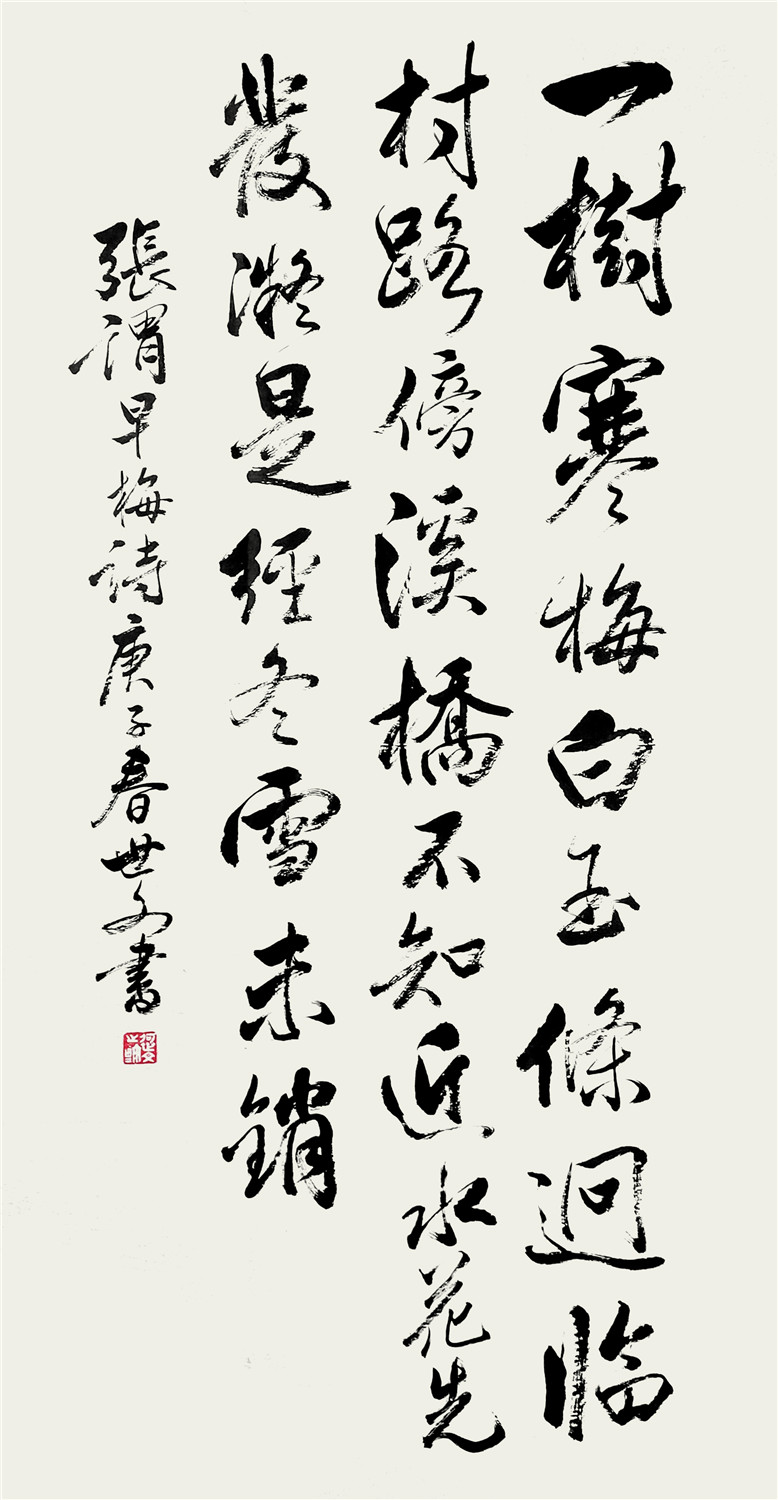 一樹寒梅白玉條迥臨
村路傍溪橋不知近水花先
發凝是經冬雪未銷
張謂早梅詩庚子春世文書